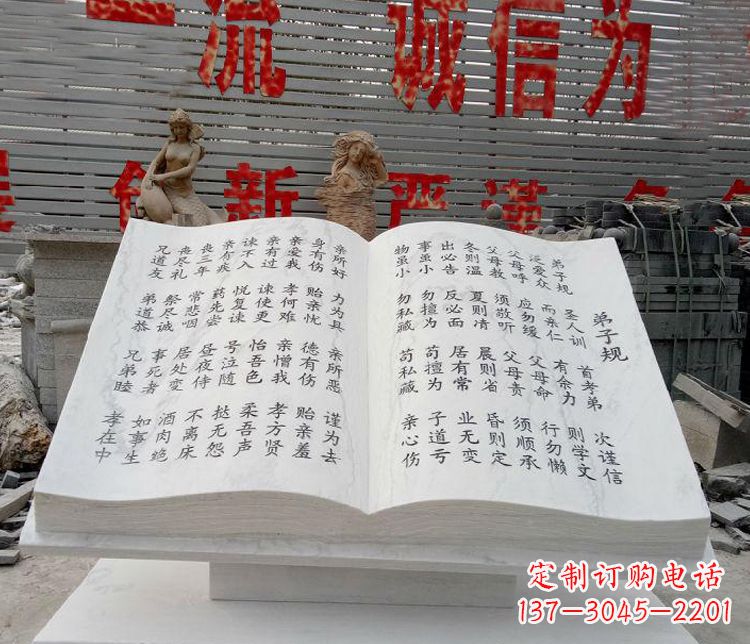 一流 诚信为
创新 严谨
弟子规
弟子规 圣人训 首考弟 次谨信
泛爱众 而亲仁 有余力 则学文
父母呼 应勿缓 父母命 行勿懒
父母教 须敬听 父母责 须顺承
冬则温 夏则清 晨则省 昏则定
出必告 反必面 居有常 业无变
事虽小 勿擅为 苟擅为 子道亏
物虽小 勿私藏 苟私藏 亲心伤
亲所好 力为具 亲所恶 谨为去
身有伤 贻亲忧 德有伤 贻亲羞
亲爱我 孝何难 亲憎我 孝方贤
亲有过 谏使更 怡吾色 柔吾声
谏不入 悦复谏 号泣随 挞无怨
亲有疾 药先尝 昼夜侍 不离床
丧三年 常悲咽 居处变 酒肉绝
丧尽礼 祭尽诚 事死者 如事生
兄道友 弟道恭 兄弟睦 孝在中
定制订购电话
137-3045-2201